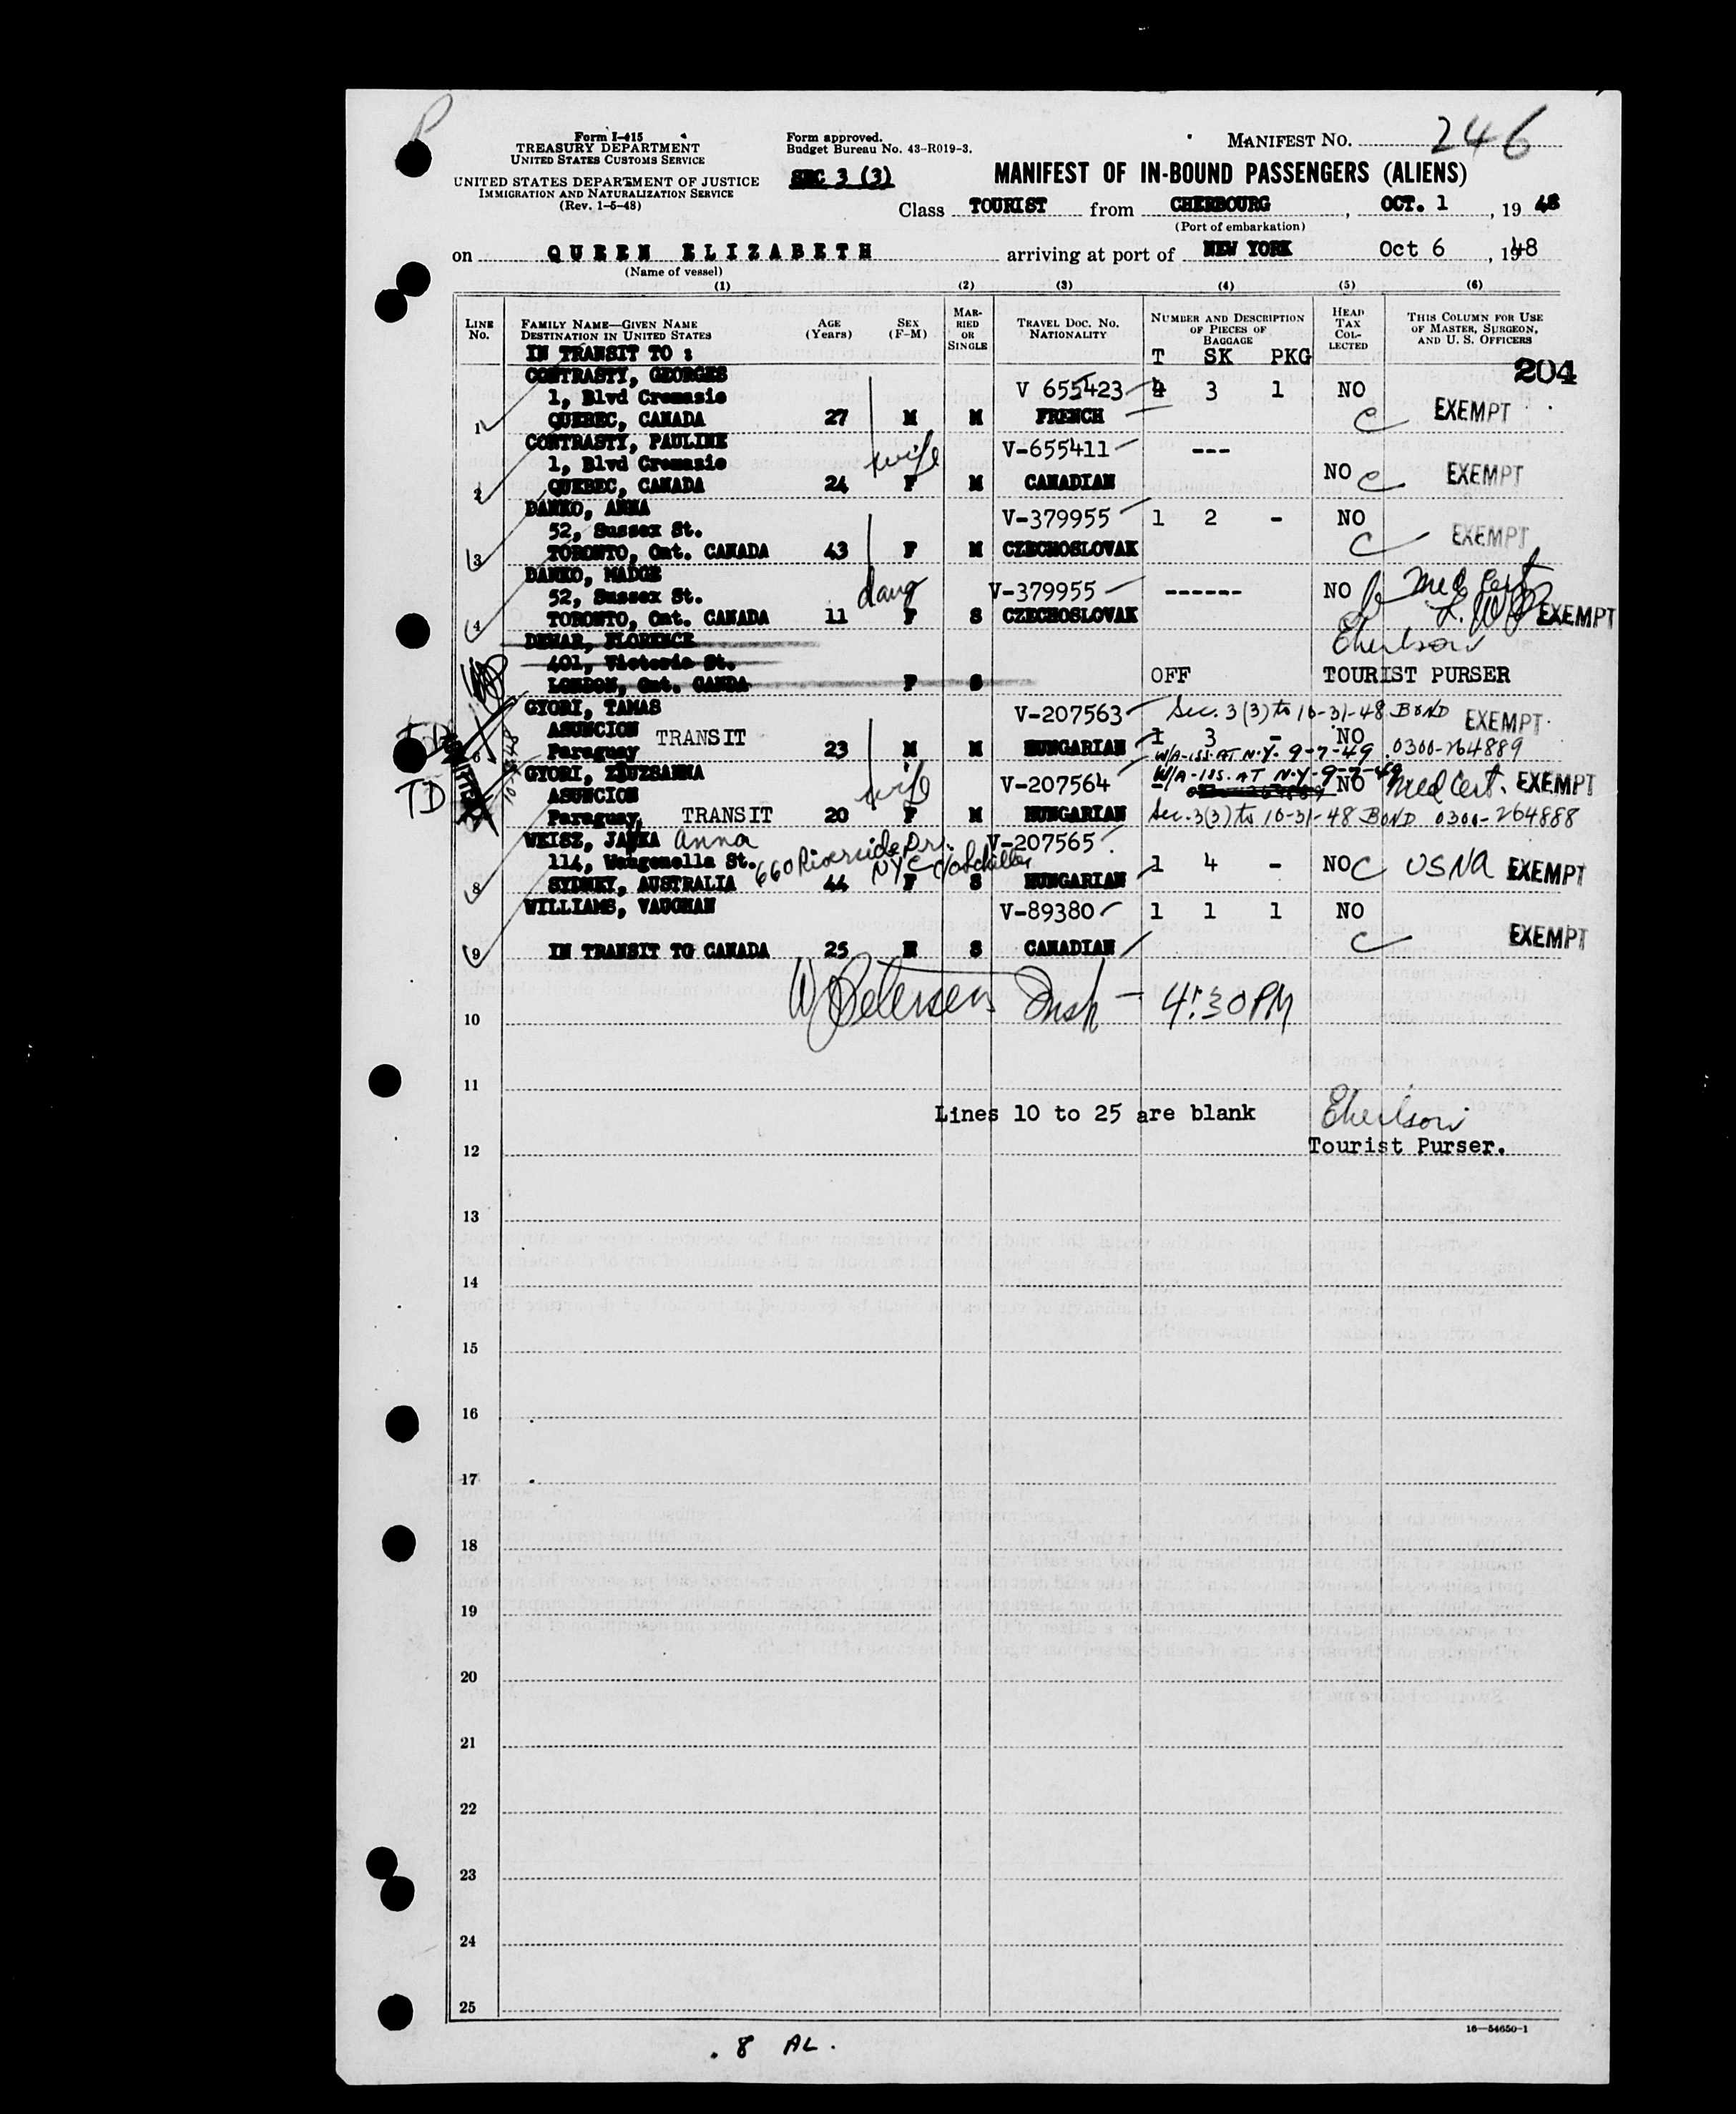 Form I-415
TREASURY DEPARTMENT
UNITED STATES CUSTOMS SERVICE
UNITED STATES DEPARTMENT OF JUSTICE
IMMIGRATION AND NATURALIZATION SERVICE
(Rev. 1-5-48)
Form approved.
Budget Bureau No. 43-R019-3.
SEC 3 (3)
MANIFEST NO. 246
MANIFEST OF IN-BOUND PASSENGERS (ALIENS)
Class TOURIST from CHERBOURG, OCT. 1, 19 48
(Port of embarkation)
on QUEEN ELIZABETH arriving at port of NEW YORK Oct 6, 1948
(Name of vessel)
(1) (2) (3) (4) (5) (6)
LINE No. FAMILY NAME—GIVEN NAME DESTINATION IN UNITED STATES AGE (Years) SEX (F-M) MARRIED OR SINGLE TRAVEL DOC. NO. NATIONALITY NUMBER AND DESCRIPTION OF PIECES OF BAGGAGE HEAD TAX COLLECTED THIS COLUMN FOR USE OF MASTER, SURGEON, AND U. S. OFFICERS
IN TRANSIT TO : T SK PKG
204
CONTRASTY, GEORGES V 655423 4 3 1 NO
1, Blvd Cremasie
1 QUEBEC, CANADA 27 M M FRENCH C EXEMPT
CONTRASTY, PAULINE wife V-655411 ---
1, Blvd Cremasie NO C EXEMPT
2 QUEBEC, CANADA 24 F M CANADIAN
DANKO, ANNA V-379955 1 2 - NO
52, Sussex St. EXEMPT
3 TORONTO, Ont. CANADA 43 F M CZECHOSLOVAK C
DANKO, MADGE daug V-379955 ------ NO Med Cert
52, Sussex St.
4 TORONTO, Ont. CANADA 11 F S CZECHOSLOVAK EXEMPT
DEMAR, FLORENCE
401, Victoria St.
LONDON, Ont. CANDA F S OFF TOURIST PURSER
GYORI, TAMAS V-207563 Sec. 3(3) to 10-31-48 BOND EXEMPT
ASUNCION TRANSIT 1 3 - NO
6 Paraguay 23 M M HUNGARIAN W/A-ISS. AT N.Y. 9-7-49 0300-264889
GYORI, ZSUZSANNA wife V-207564 W/A-ISS. AT N.Y. 9-7-49 NO Med Cert. EXEMPT
ASUNCION
TD
Paraguay, TRANSIT 20 F M HUNGARIAN Sec. 3(3) to 10-31-48 BOND 0300-264888
WEISZ, JANKA Anna V-207565
114, Wangenella St. 660 Riverside Dr. NYC 1 4 - NO C USNA EXEMPT
8 SYDNEY, AUSTRALIA 44 F S HUNGARIAN
WILLIAMS, VAUGHAN V-89380 1 1 1 NO
9 IN TRANSIT TO CANADA 25 M S CANADIAN C EXEMPT
W Petersen Insp - 4:30 PM
10
11
Lines 10 to 25 are blank
12 Tourist Purser.
13
14
15
16
17
18
19
20
21
22
23
24
25
16—54650-1
8 AL.